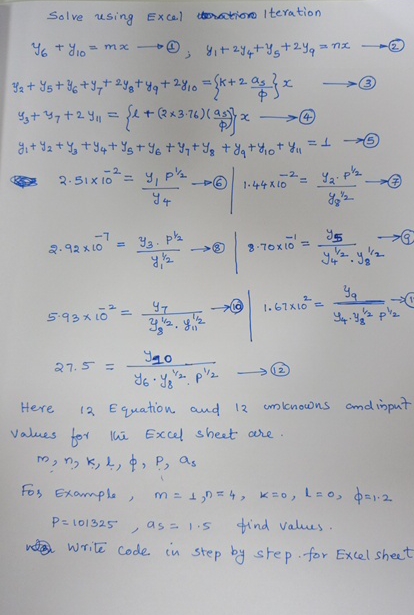 Solve using Excel Iteration
y6 + y10 = mx → ① , y1 + 2y4 + y5 + 2y9 = nx → ②
y2 + y5 + y6 + y7 + 2y8 + y9 + 2y10 = {k + 2 as/ϕ} x → ③
y3 + y7 + 2y11 = {l + (2 × 3.76)(as/ϕ)} x → ④
y1 + y2 + y3 + y4 + y5 + y6 + y7 + y8 + y9 + y10 + y11 = 1 → ⑤
2.51×10^-2 = y1 P^1/2 / y4 → ⑥ | 1.44×10^-2 = y2 . P^1/2 / y8^1/2 → ⑦
2.92×10^-7 = y3 . P^1/2 / y1^1/2 → ⑧ | 8.70×10^-1 = y5 / y4^1/2 . y8^1/2 → ⑨
5.93×10^-2 = y7 / y8^1/2 . y11^1/2 → ⑩ | 1.67×10^2 = y9 / y4 . y8^1/2 P^1/2
27.5 = y10 / y6 . y8^1/2 . P^1/2 → ⑫
Here 12 Equation and 12 unknowns and input
values for the Excel sheet are.
m, n, k, l, ϕ, P, as
For Example , m = 1, n = 4, k=0, l=0, ϕ=1.2
P=101325 , as = 1.5 find values.
Write code in step by step. for Excel sheet